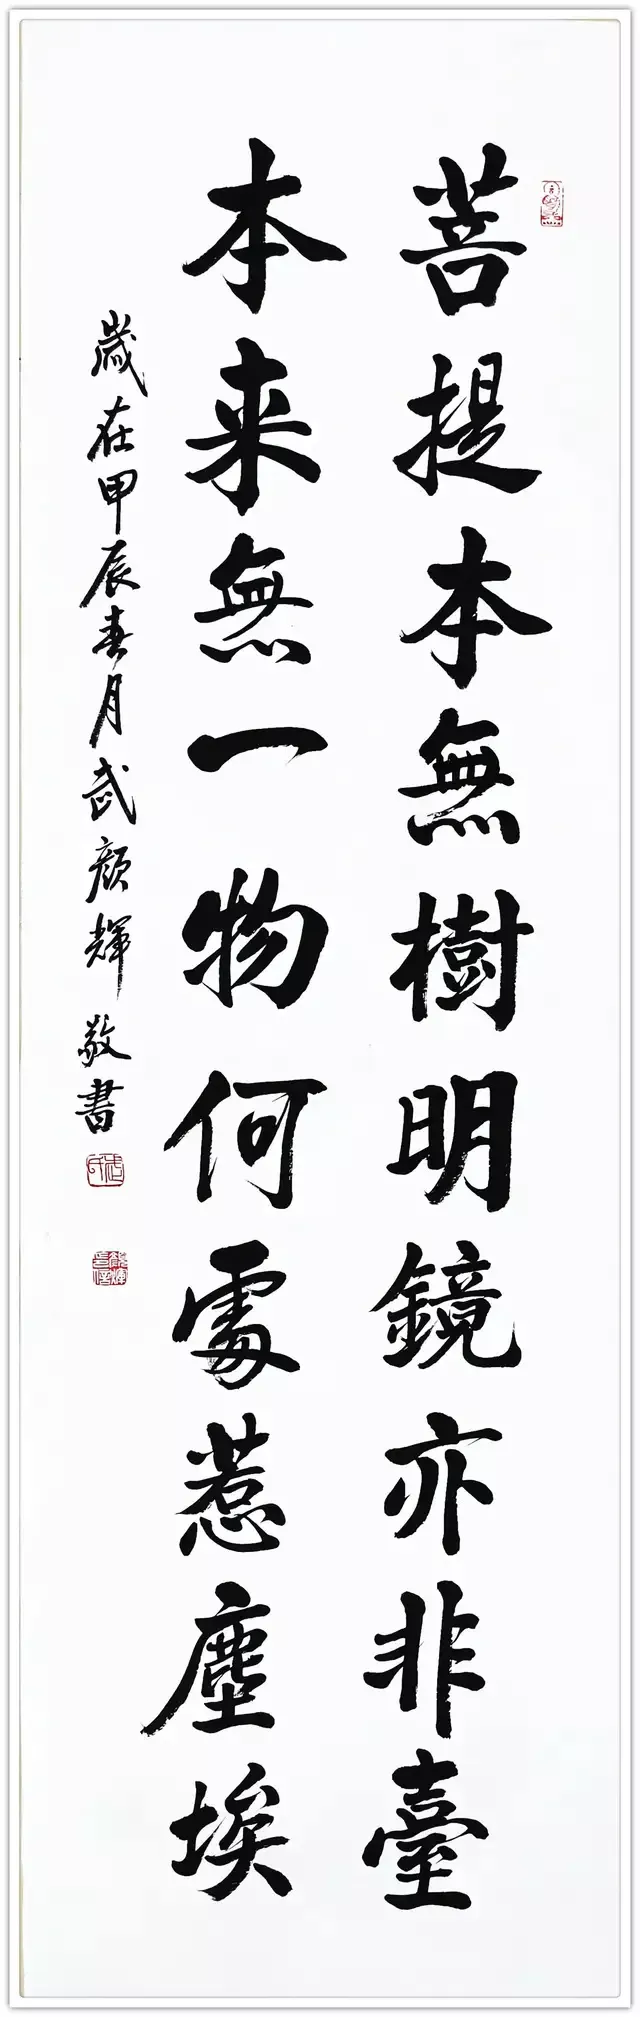 菩提本無樹明鏡亦非臺
本来無一物何處惹塵埃
歲在甲辰春月武顏輝敬書